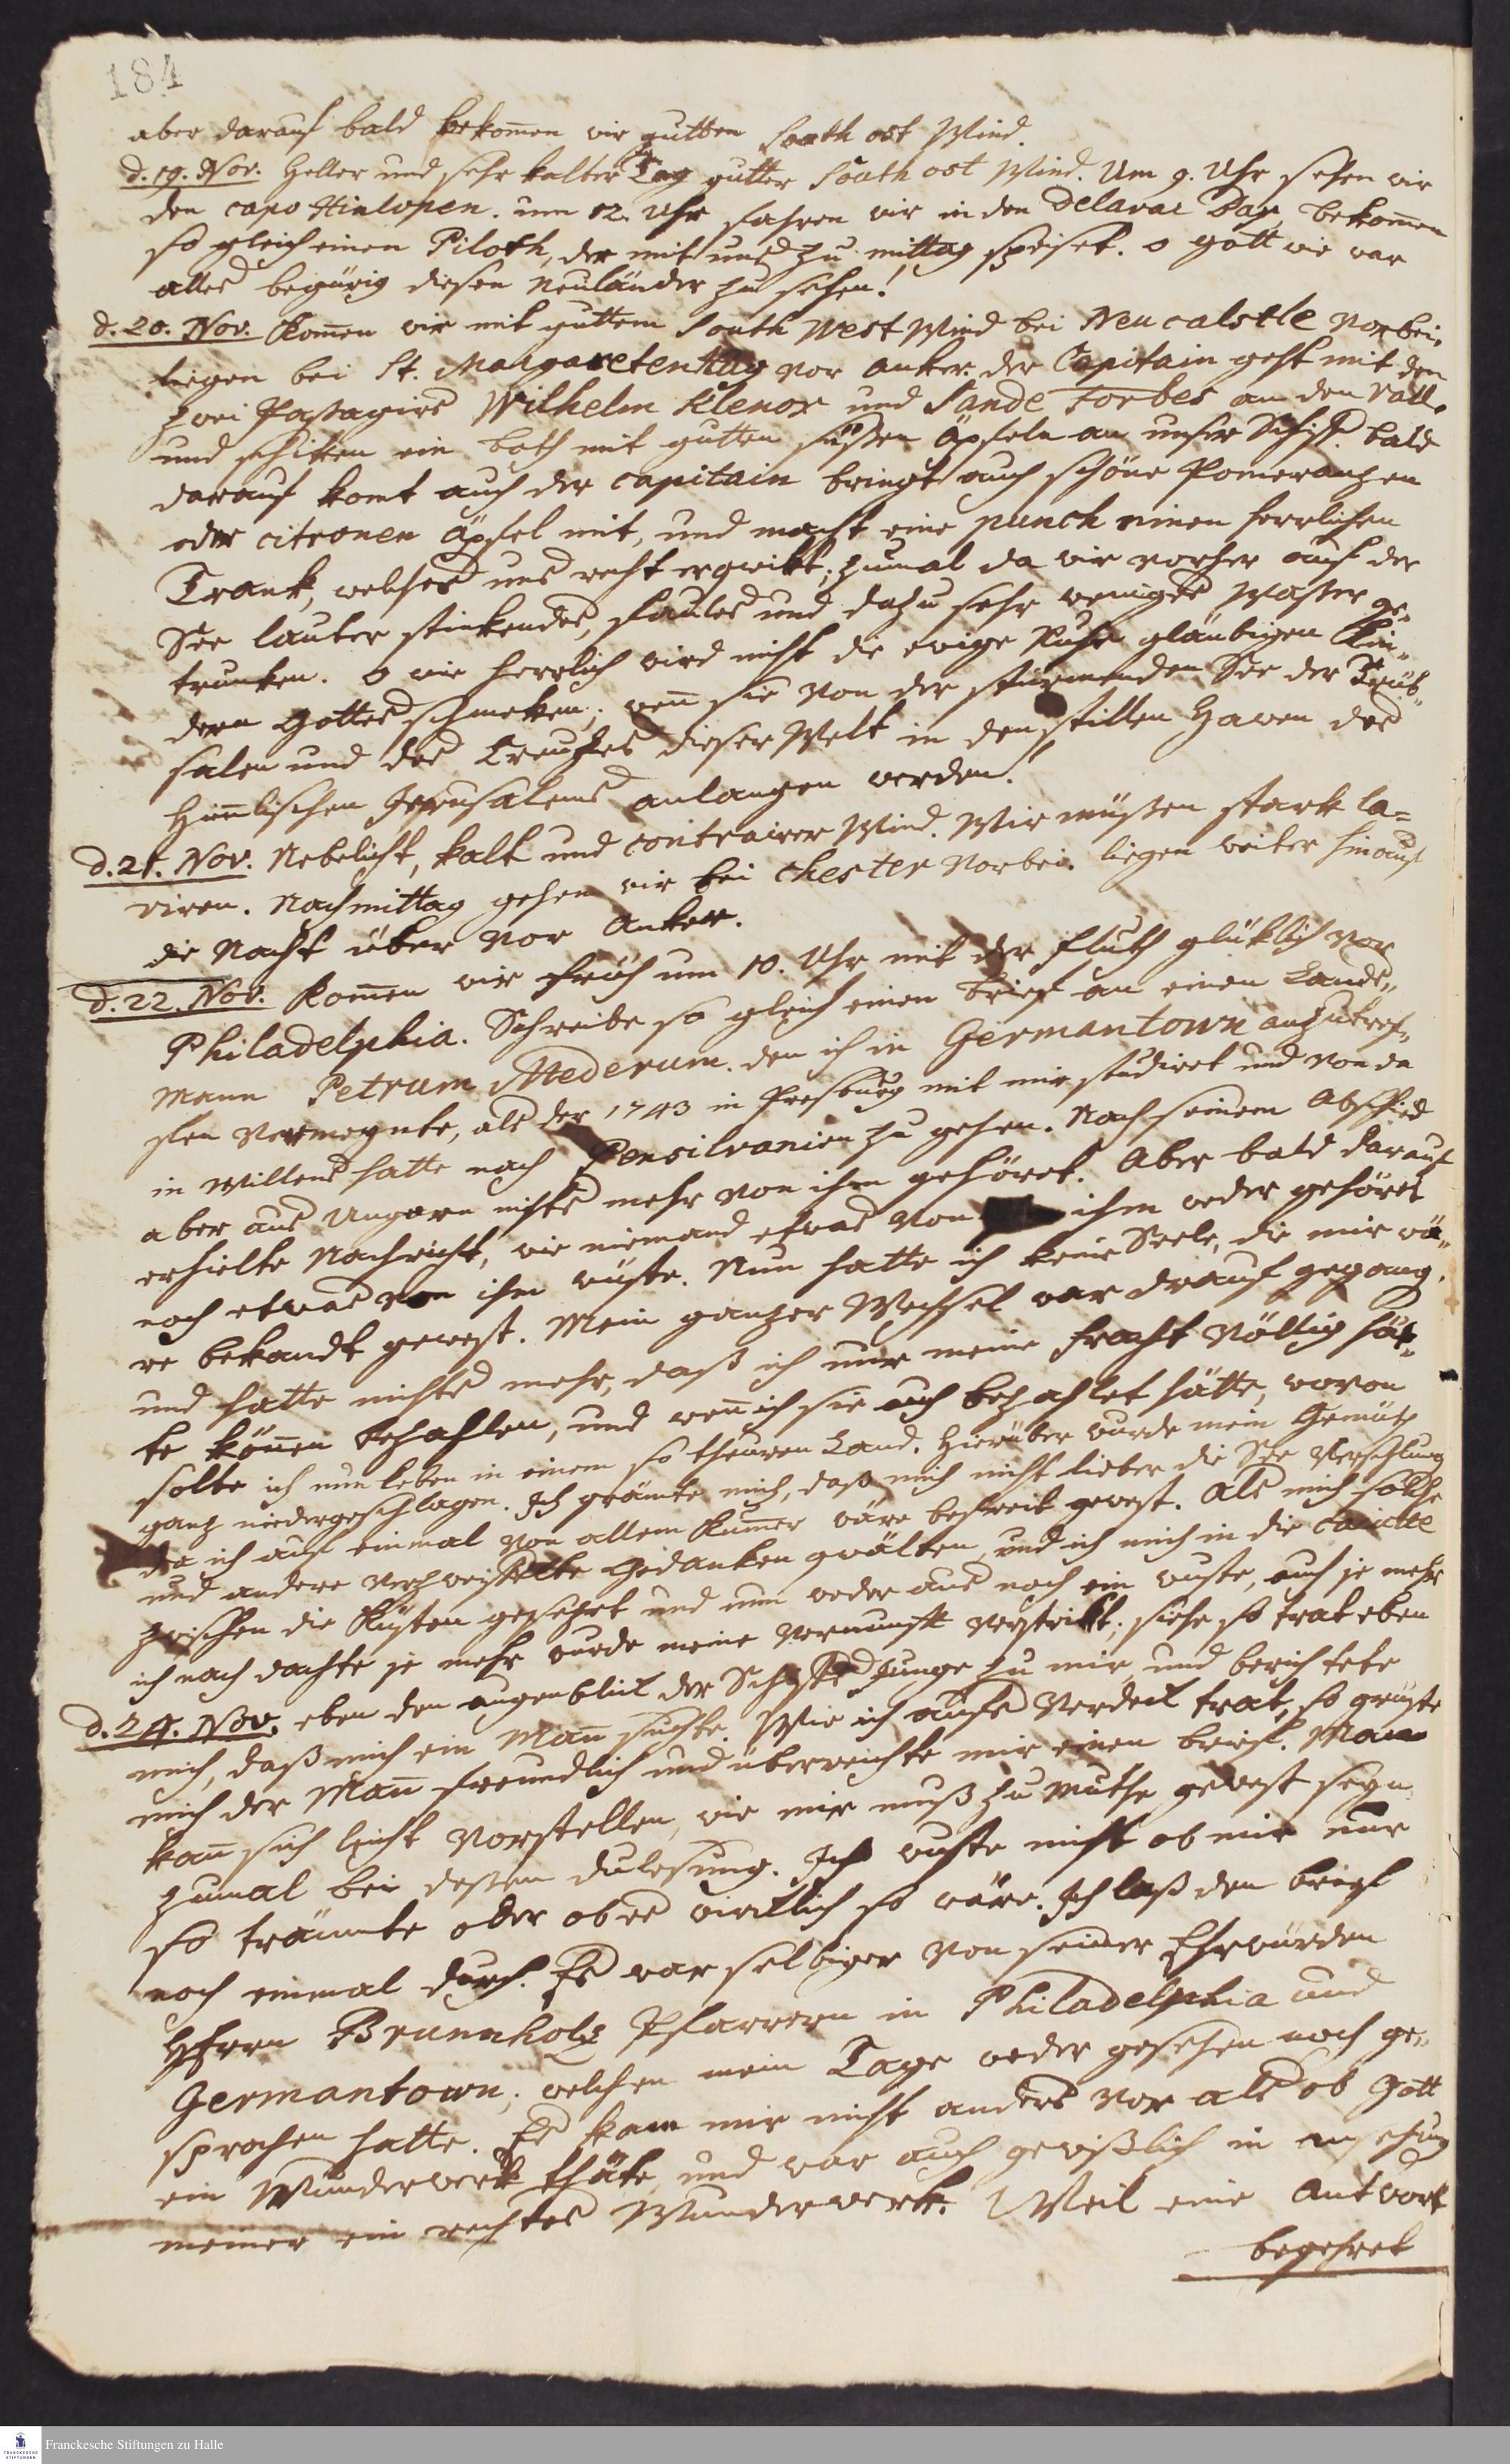 184
aber darauf bald bekom̄en wir gutten South ost Wind.
d. 19. Nov. Heller und sehr kalter Tag gutter South ost Wind. Um 9. Uhr sehen wir
den capo Hinlopen. um 12. Uhr fahren wir in den Delavar Bay, bekom̄en
so gleich einen Piloth, der mit uns zu mittag speiset. o gott wie war
alles begürig diesen Neuländer zu sehen!
d. 20. Nov. Kom̄en wir mit guttem South West Wind bei Neu calstle vorbei.
liegen bei St. Margareten vor Anker. der Capitain geht mit den
zwei Passagirs Wilhelm Klenor und Sande Forbes an den
und schikken ein both mit gutten süssen Äpfeln an unser Schiff. bald
darauf komt auch der capitain bringt auch schöne Pomeranzen
oder citronen Äpfel mit, und macht eine punch einen herrlichen
Trank, welches uns recht erqwikt; zumal da wir vorher auf der
See lauter stinkendes, faules und dazu sehr weniges Wasser ge„
trunken. O wie herrlich wird nicht die ewige Ruhe gläubigen Kin„
dern Gottes schmeken; wen̄ sie von der stürmenden See der Trüb„
salen und des Creuzes dieser Welt in den stillen Haven des
Him̄lischen Jerusalems anlangen werden!
d. 21. Nov. Nebelicht, kalt und contrairer Wind. Wir müssen stark la=
viren. Nachmittag gehen wir bei Chester vorbei. liegen weiter hinauf
die Nacht über vor Anker.
d. 22. Nov. Kom̄en wir früh um 10. Uhr mit der Fluth glüklich vor
Philadelphia. Schreibe so gleich einen brief an einen Lands„
Mann Petrum Mederum. den ich in Germantown anzutref„
fen vermeynte, als der 1743 in Presburg mit mir studiret und von da
in Willens hatte nach Pensilvanien zu gehen. Nach seinem Abschied
aber aus Ungarn nichts mehr von ihm gehöret. Aber bald darauf
erhielte Nachricht, wie niemand etwas von ihm weder gehöret
noch etwas von ihm wüste. Nun hatte ich keine Seele, die mir wä„
re bekandt gewest. Mein ganzer Wechsel war drauf gegang.
und hatte nichts mehr, daß ich nur meine Fracht völlig hät„
te kön̄en bezahlen, und wen̄ ich sie auch bezahlet hätte, wovon
solte ich nun leben in einem so theuren Land. Hierüber wurde mein Gemüth
ganz niedergeschlagen. Ich grämte mich, daß mich nicht lieber die See verschlung
da ich auf einmal von allem Kum̄er wäre befreit gewest. Als mich solche
und andere verzweifelte Gedanken qwälten, und ich mich in die cajutte
zwischen die Kisten gesezet und nun weder aus noch ein wuste, auch je mehr
ich nach dachte je mehr wurde meine Vernunft verstrikt; siehe so trat eben
d. 24. Nov. eben den augenblick der Schiffs Junge zu mir und berichtete
mich, daß mich ein Man̄ suchte. Wie ich aufs Verdeck trat, so grüste
mich der Man̄ freundlich und überreichte mir einen brief. Man
kan̄ sich leicht vorstellen, wie mir muß zu Muthe gewest seyn
zumal bei dessen dulesung. Ich wuste nicht ob mir nur
so träumte oder ob es wircklich so wäre. Ich laß den brief
noch einmal durch. Es war selbiger von seiner Ehrwürden
Herrn Brunnholz Pfarrern in Philadelphia und
Germantown; welchen mein Tage weder gesehen noch ge„
sprochen hatte. Es kam mir nicht anders vor als ob Gott
ein Wunderwerk thäte, und war auch gewißlich in ansehung
meiner ein rechtes Wunderwerk. Weil eine Antwort
begehret
Franckesche Stiftungen zu Halle